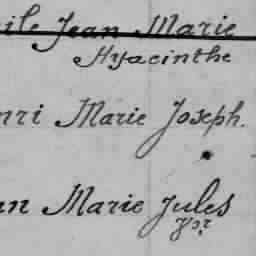 ile Jean Marie
Hyacinthe
nri Marie Joseph.
an Marie Jules